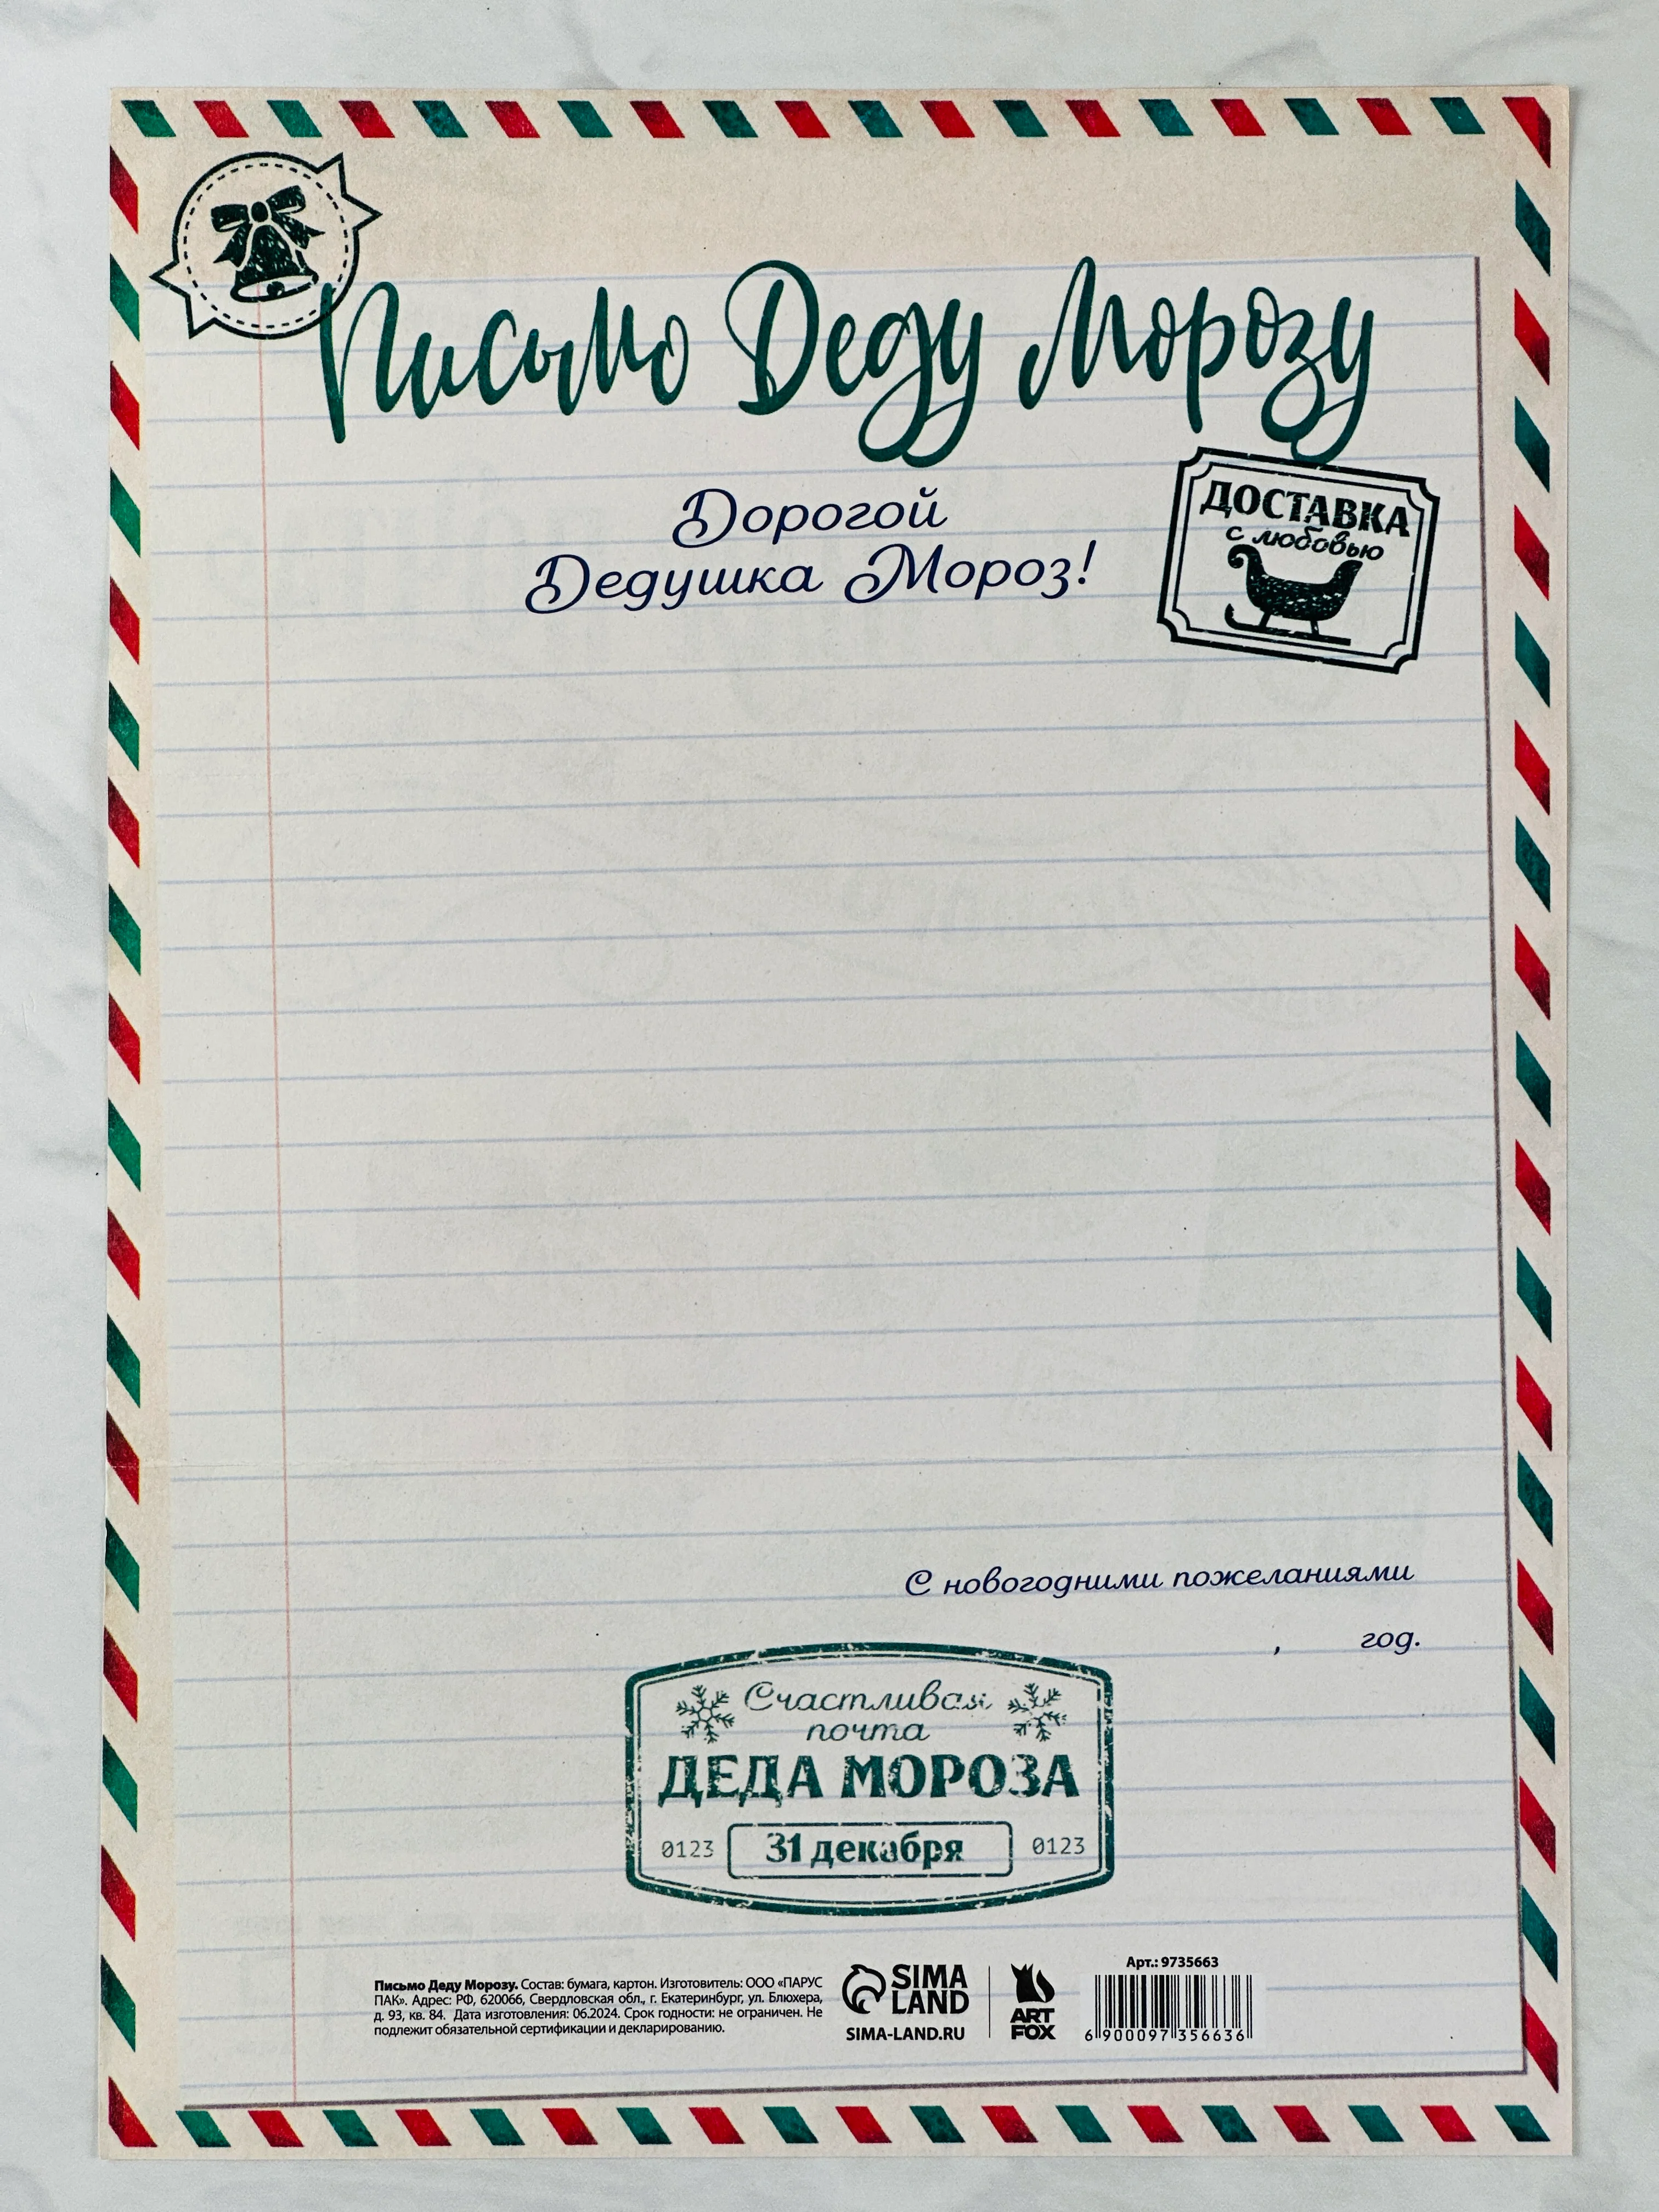 Письмо Деду Морозу
Дорогой
Дедушка Мороз!
ДОСТАВКА
с любовью
С новогодними пожеланиями
, год.
Счастливая
почта
ДЕДА МОРОЗА
0123 31 декабря 0123
Письмо Деду Морозу. Состав: бумага, картон. Изготовитель: ООО «ПАРУС
ПАК». Адрес: РФ, 620066, Свердловская обл., г. Екатеринбург, ул. Блюхера,
д. 93, кв. 84. Дата изготовления: 06.2024. Срок годности: не ограничен. Не
подлежит обязательной сертификации и декларированию.
SIMA
LAND
SIMA-LAND.RU
ART
FOX
Арт.: 9735663
6 900097 356636